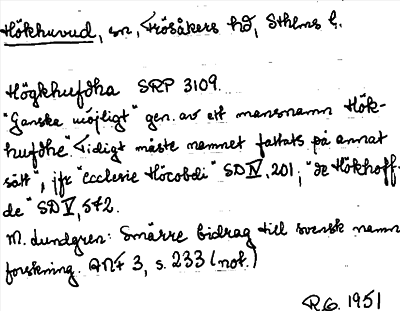 Hökhuvud, sn, Frösåkers hd, Sthlms l.
Högkhufdha SRP 3109.
"Ganska möjligt" gen. av ett mansnamn Hök-
hufdhe. "Tidigt måste namnet fattats på annat
sätt", jfr "ecclesie Höcobdi" SD IV, 201; "de Hökhoff-
de" SD V, 542.
M. Lundgren: Smärre bidrag till svensk namn
forskning. ANF 3, s. 233 (not.)
R.G. 1951